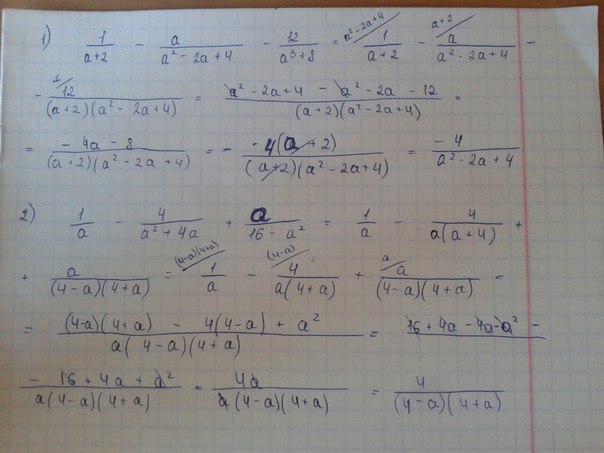 1) 1/(a+2) - a/(a² - 2a + 4) - 12/(a³ + 8) = (a² - 2a + 4 / 1)/(a+2) - (a+2 / a)/(a² - 2a + 4) -
- (1 / 12)/((a+2)(a² - 2a + 4)) = (a² - 2a + 4 - a² - 2a - 12)/((a+2)(a² - 2a + 4)) =
= (- 4a - 8)/((a+2)(a² - 2a + 4)) = - (- 4(a + 2))/((a+2)(a² - 2a + 4)) = (- 4)/(a² - 2a + 4)
2) 1/a - 4/(a² + 4a) + a/(16 - a²) = 1/a - 4/(a(a+4)) +
+ a/((4-a)(4+a)) = ((4-a)(4+a) / 1)/a - ((4-a) / 4)/(a(4+a)) + (a / a)/((4-a)(4+a)) =
= ((4-a)(4+a) - 4(4-a) + a²)/(a(4-a)(4+a)) = 16 + 4a - 4a - a² -
(- 16 + 4a + a²)/(a(4-a)(4+a)) = 4a/(a(4-a)(4+a)) = 4/((4-a)(4+a))